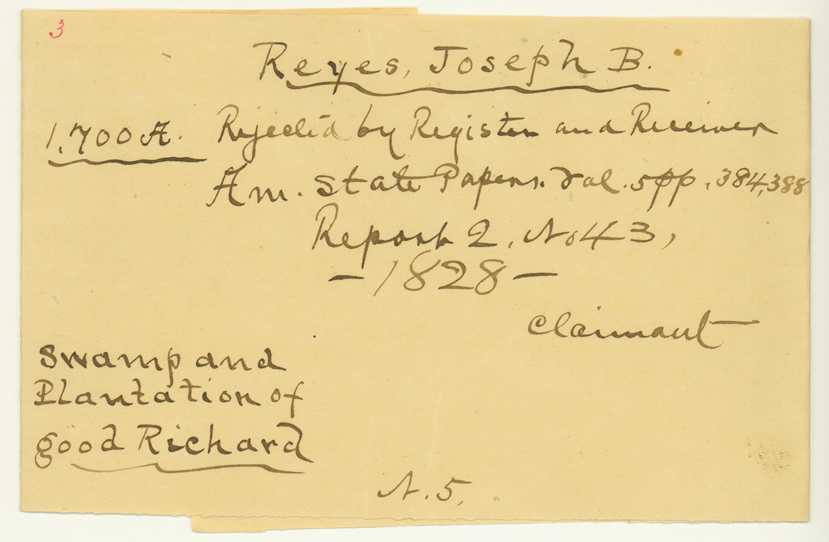 3
Reyes, Joseph B.
1,700 A. Rejected by Register and Receiver
Am. State Papers. Vol. 5 pp. 384, 388
Report 2, No 43,
— 1828 —
Claimant
Swamp and
Plantation of
good Richard
N. 5.